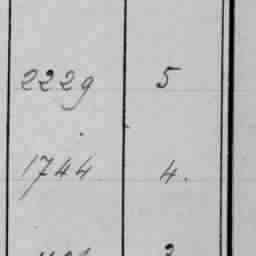 2229 5
1744 4.